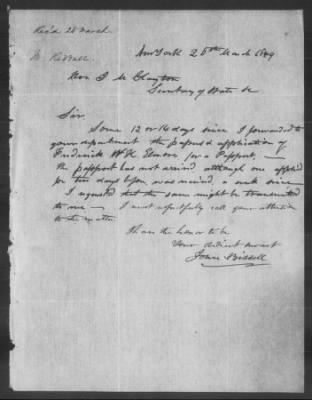 Rec'd 28 March
New York 26th March 1849
Hon J M Clayton
Secretary of State &c
Sir
Some 12 or 14 days since I forwarded to
your department the papers & application of
Frederick W K for a Passport, —
the passport has not arrived although one applied
for two days was received, a week since
I requested that the same might be transmitted
to me — I most respectfully call your attention
to the matter
I have the honor to be
Your obedient servant
John Bissell